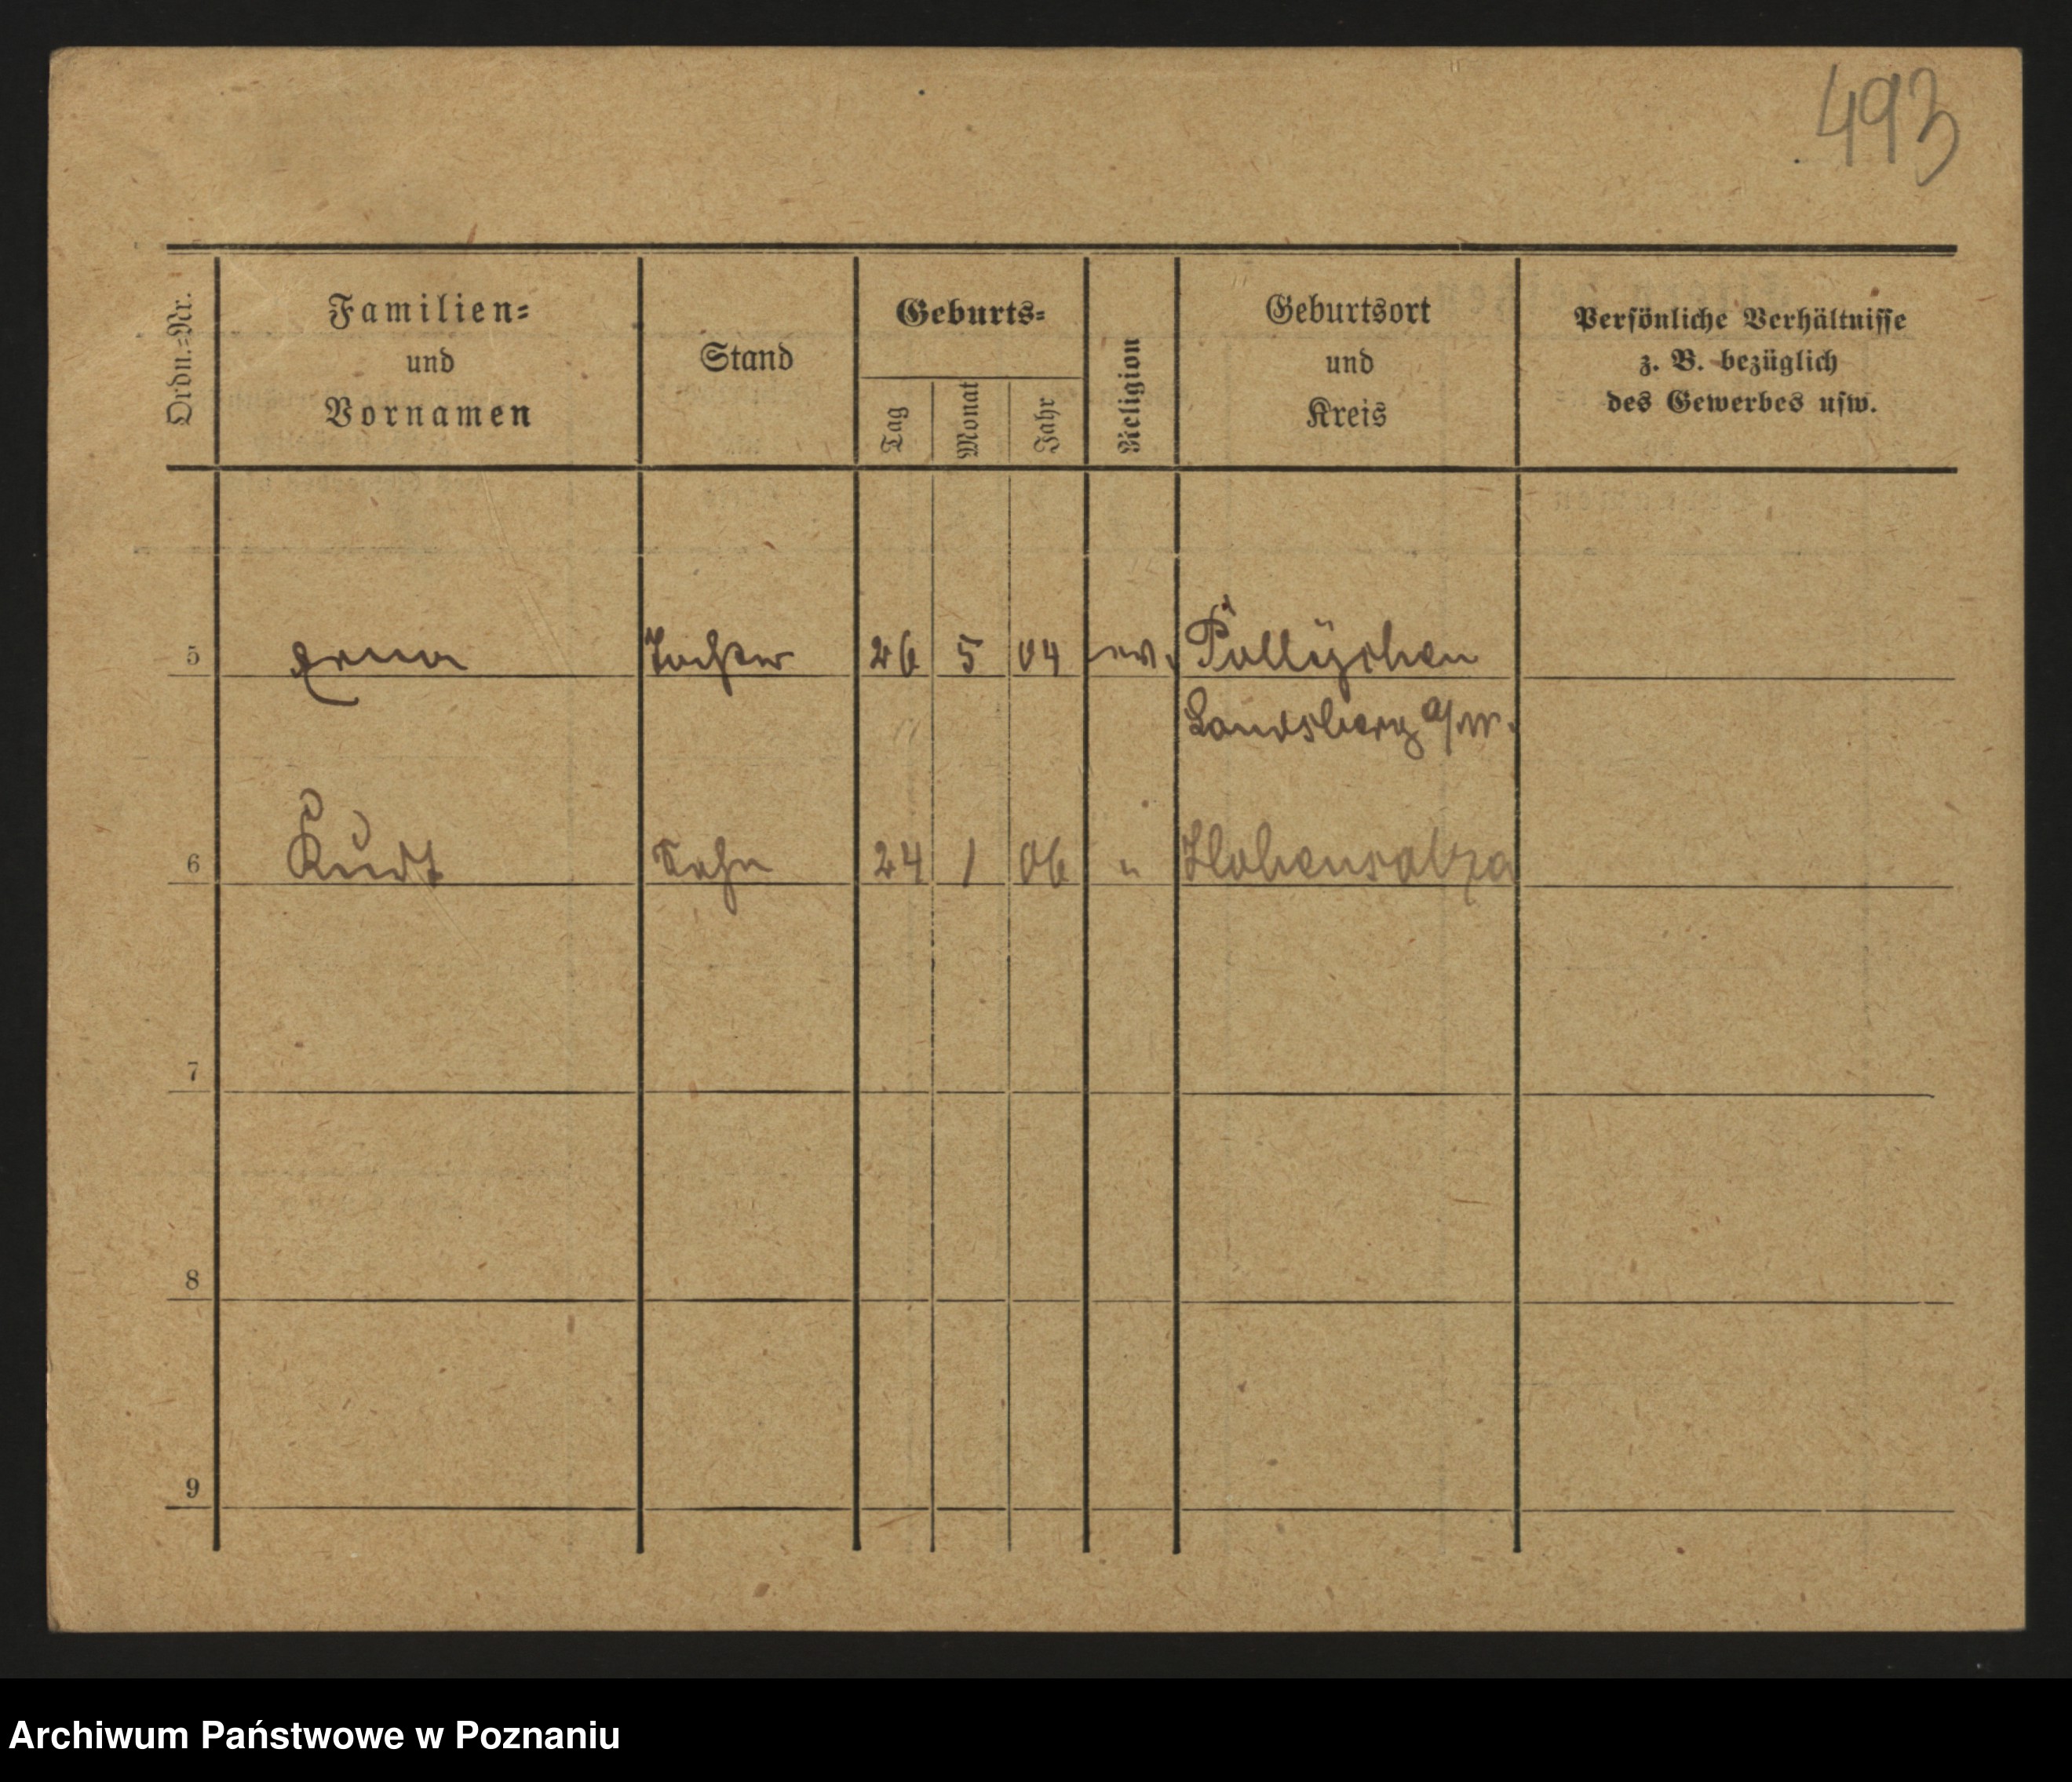 493
Ordn.=Nr.
Familien=
und
Vornamen
Stand
Geburts=
Tag
Monat
Jahr
Religion
Geburtsort
und
Kreis
Persönliche Verhältnisse
z. B. bezüglich
des Gewerbes usw.
5 Erna Tochter 26 5 04 ev. Pollychen
Landsberg a/W.
6 Kurt Sohn 24 1 06 " Hohensalza
7
8
9
Archiwum Państwowe w Poznaniu